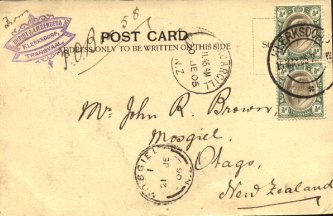 58
POST CARD
ADDRESS ONLY TO BE WRITTEN ON THIS SIDE
KLERKSDORP,
TRANSVAAL
P.O.B.
KLERKSDORP
Mr John R. Brown,
Mosgiel,
Otago,
New Zealand
MOSGIEL
21 JE
05